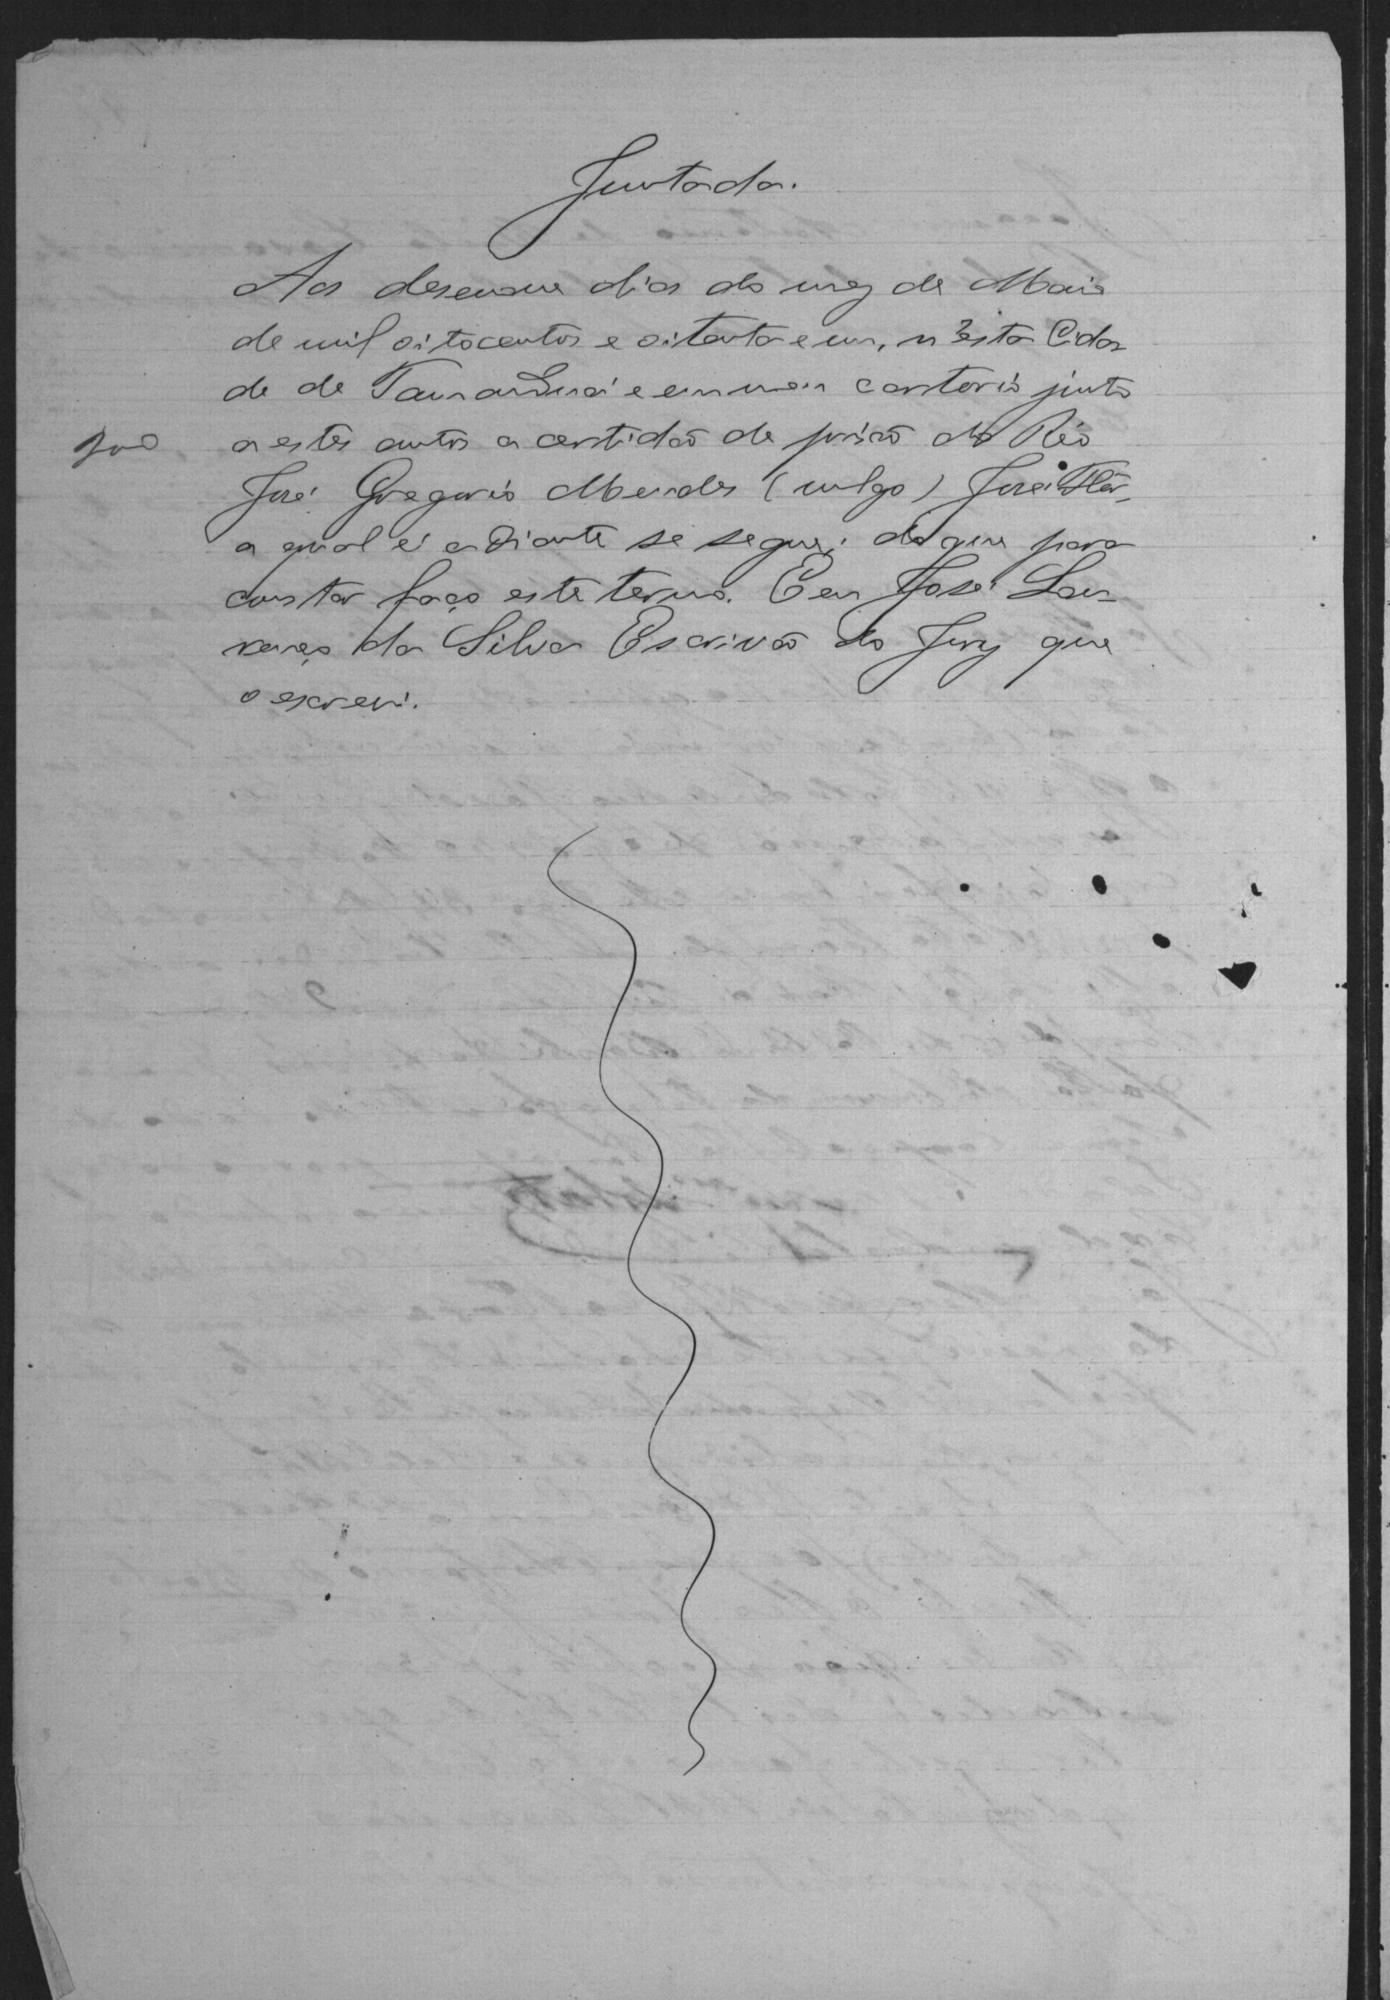 Juntada.
Aos desenove dias do mez de Maio
de mil oitocentos e oitenta e um, n'esta Cida
de de e em meu cartorio junto
a estes autos a certidão de prisão do Réo
José Gregorio Mendes (vulgo) José
a qual é adiante se segue; do que para
constar faço este termo. Eu José Lou
renço da Silva Escrivão do Jury que
o escrevi.